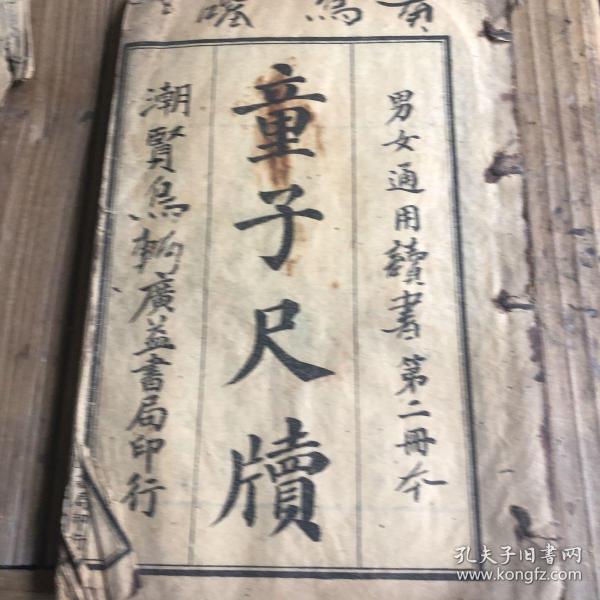 男女通用讀書第二冊本
童子尺牘
潮賢鳥𨋢廣益書局印行
孔夫子旧书网
www.kongfz.com